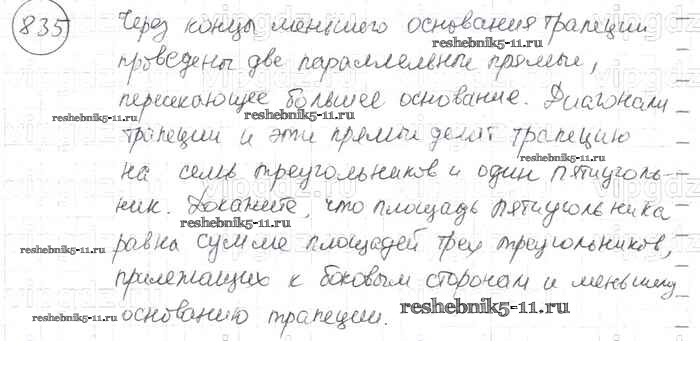 835
Через концы меньшего основания трапеции
reshebnik5-11.ru
проведены две параллельные прямые,
пересекающее большее основание. Диагонали
reshebnik5-11.ru
reshebnik5-11.ru
трапеции и эти прямые делят трапецию
reshebnik5-11.ru
на семь треугольников и один пятиуголь-
ник. Докажите, что площадь пятиугольника
reshebnik5-11.ru
равна сумме площадей трех треугольников,
reshebnik5-11.ru
прилежащих к боковым сторонам и меньшему
reshebnik5-11.ru
основанию трапеции.
reshebnik5-11.ru